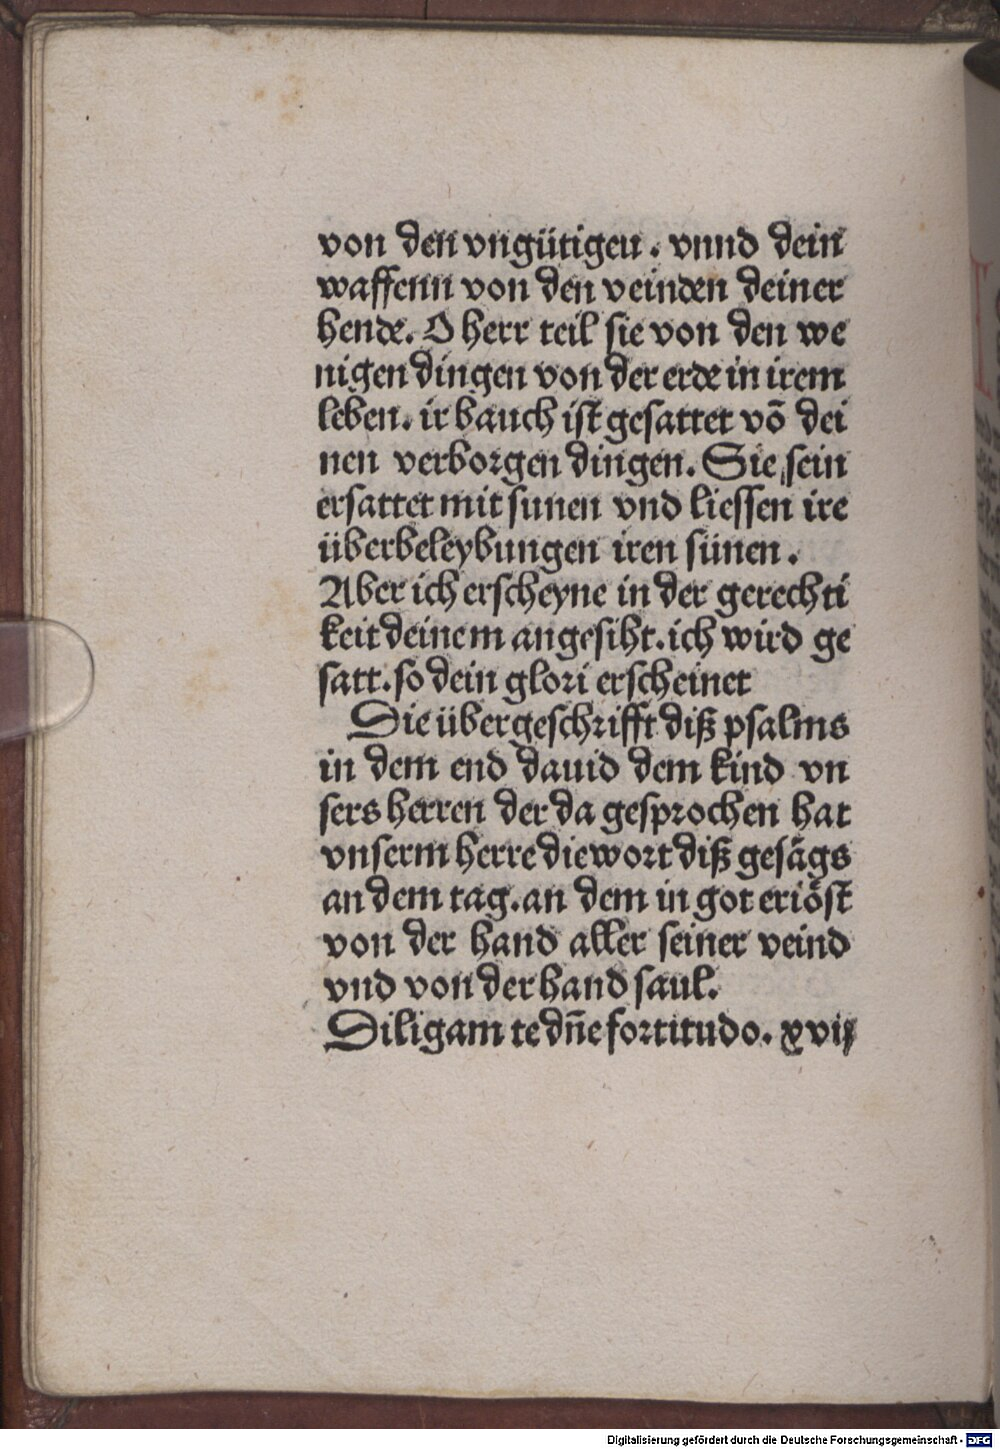 von den vngütigen. vnnd dein
waffenn von den veinden deiner
hende. O herr teil sie von den we
nigen dingen von der erde in irem
leben. ir bauch ist gesattet võ dei
nen verborgen dingen. Sie sein
ersattet mit sunen vnd liessen ire
überbeleybungen iren sünen.
Aber ich erscheyne in der gerechti
keit deinem angesiht. ich wird ge
satt. so dein glori erscheinet
Die übergeschrifft diß psalms
in dem end dauid dem kind vn
sers herren der da gesprochen hat
vnserm herre die wort diß gesãgs
an dem tag. an dem in got erlöst
von der hand aller seiner veind
vnd von der hand saul.
Diligam te dñe fortitudo. xvij
Digitalisierung gefördert durch die Deutsche Forschungsgemeinschaft - DFG